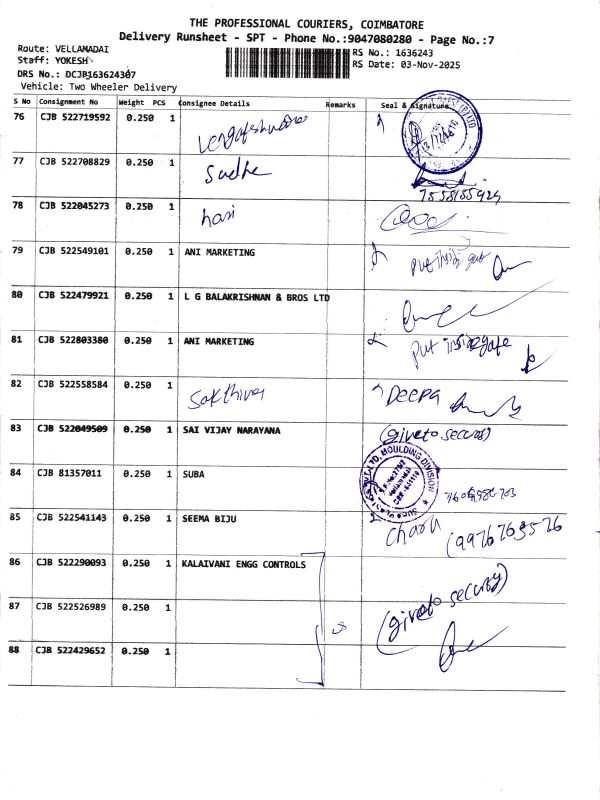 THE PROFESSIONAL COURIERS, COIMBATORE
Delivery Runsheet - SPT - Phone No.:9047080280 - Page No.:7
Route: VELLAMADAI
Staff: YOKESH
DRS No.: DCJB163624307
Vehicle: Two Wheeler Delivery
RS No.: 1636243
RS Date: 03-Nov-2025
S No Consignment No Weight PCS Consignee Details Remarks Seal & Signature
76 CJB 522719592 0.250 1
77 CJB 522708829 0.250 1 Sudhe
7558185924
78 CJB 522045273 0.250 1 hari
79 CJB 522549101 0.250 1 ANI MARKETING put inside gate
80 CJB 522479921 0.250 1 L G BALAKRISHNAN & BROS LTD
81 CJB 522803380 0.250 1 ANI MARKETING put inside gate
82 CJB 522558584 0.250 1 Sakthivel Deepa
83 CJB 522049509 0.250 1 SAI VIJAY NARAYANA (give to secury)
84 CJB 81357011 0.250 1 SUBA
MOULDING DIVISION
85 CJB 522541143 0.250 1 SEEMA BIJU Charu (9976763576
86 CJB 522290093 0.250 1 KALAIVANI ENGG CONTROLS
87 CJB 522526989 0.250 1 (give to secury)
88 CJB 522429652 0.250 1